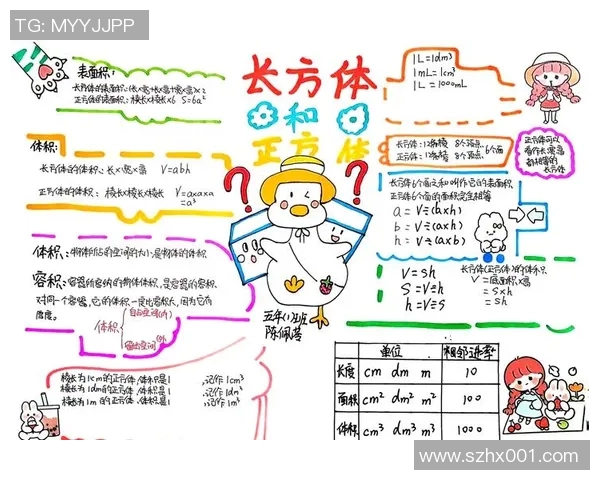 TG: MYYJJPP
长方体
和
正方体
表面积:
长方体的表面积:(长×宽+长×高+宽×高)×2
正方体的表面积:棱长×棱长×6 S=6a²
体积:
长方体的体积:长×宽×高 V=abh
正方体的体积:棱长×棱长×棱长 V=a×a×a
=a³
体积:物体所占的空间的大小,是物体的体积.
容积:容器所容纳的物体体积,是容器的容积.
对同一个容器,它的体积一定比容积大,因为它有
厚度。
体积
棱长为1cm的正方体,体积是1 记作1cm³
棱长为1dm的正方体,体积是1 记作1dm³
棱长为1m的正方体,体积是1 记作1m³
?
?
五年(1)班
1L=1dm³
1mL=1cm³
1L=1000mL
长方体:12条棱 8个顶点
正方体:12条棱 8个顶点
6个面
正方体可以
看作长宽高
都相等的
长方体
长方体6个面之和叫作它的表面积.
正方体6个面的面积完全相等
a=V÷(b×h)
b=V÷(a×h)
h=V÷(a×b)
V=sh
S=V÷h
h=V÷S
长方体(正方体)的体积
V=底面积×高
=S×h
=sh
单位 相邻进率
长度 cm dm m 10
面积 cm² dm² m² 100
体积 cm³ dm³ m³ 1000
www.szhx001.com